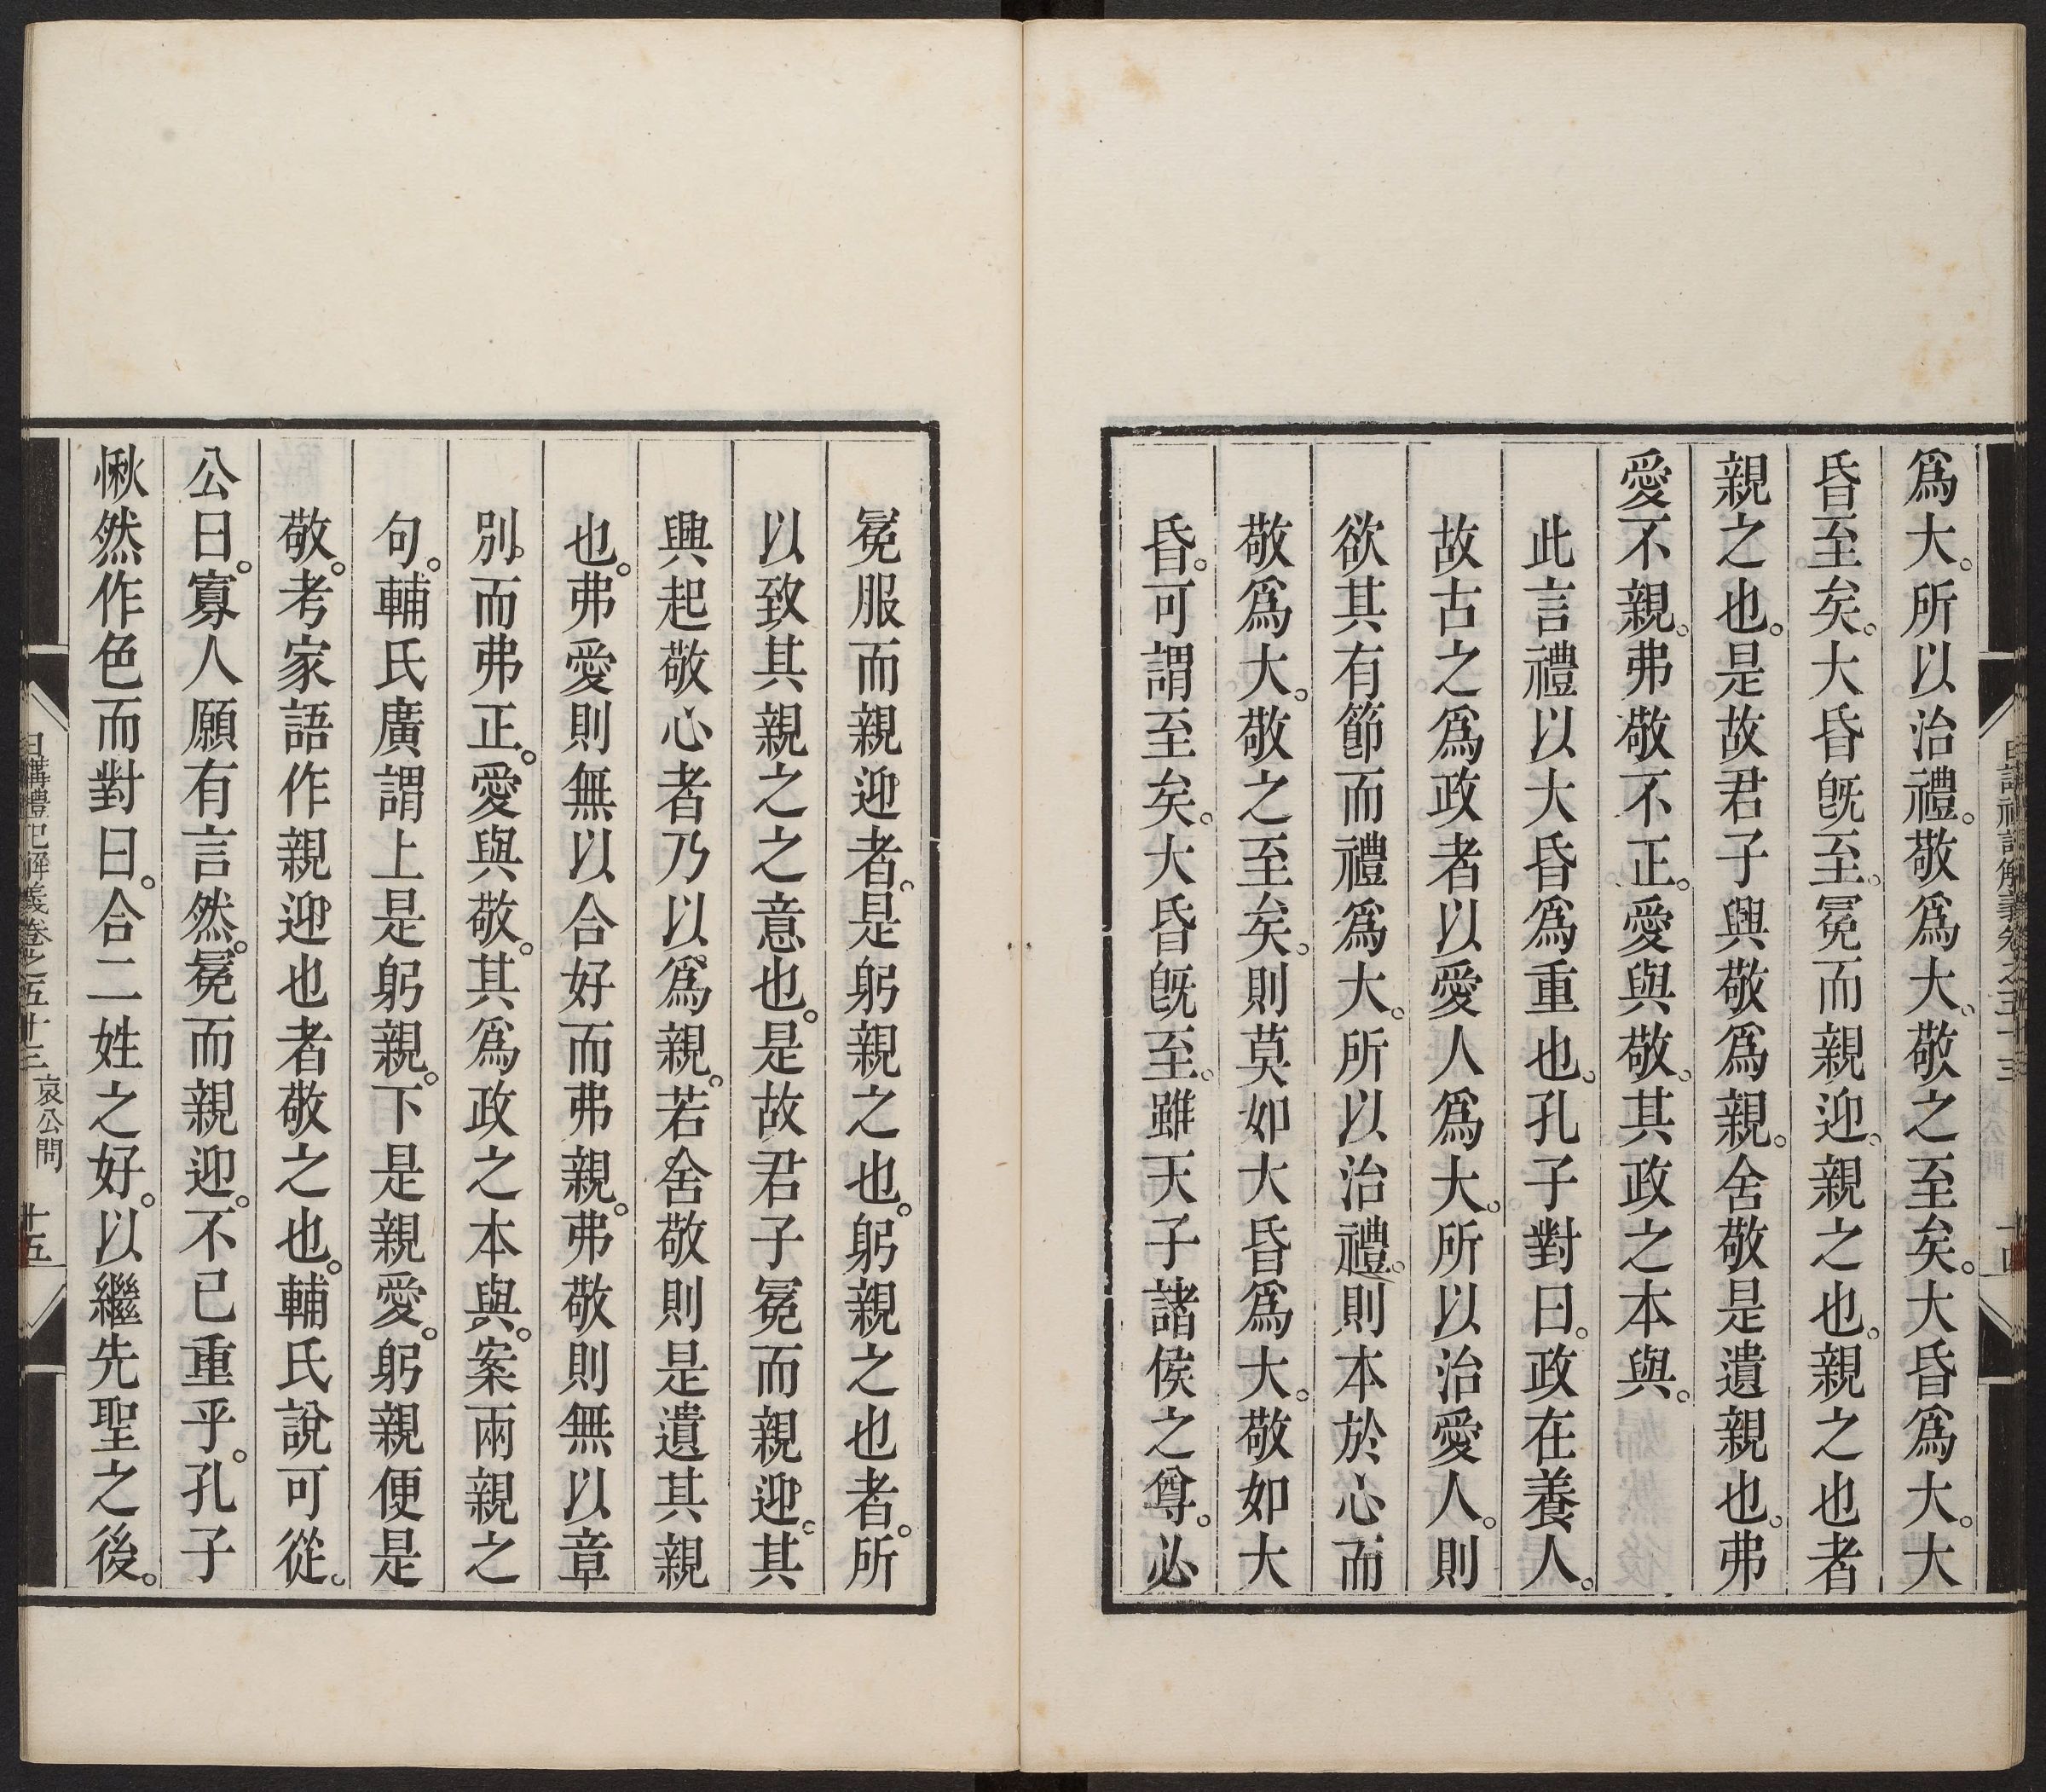 爲大。所以治禮。敬爲大。敬之至矣。大昏爲大。大
昏至矣。大昏旣至。冕而親迎。親之也。親之也者
親之也。是故君子興敬爲親。舍敬是遺親也。弗
愛不親。弗敬不正。愛與敬。其政之本與。
此言禮以大昏爲重也。孔子對曰。政在養人。
故古之爲政者以愛人爲大。所以治愛人。則
欲其有節而禮爲大。所以治禮。則本於心而
敬爲大。敬之至矣。則莫如大昏爲大。敬如大
昏。可謂至矣。大昏旣至。雖天子諸侯之尊。必
冕服而親迎者。是躬親之也。躬親之也者。所
以致其親之之意也。是故君子冕而親迎。其
興起敬心者乃以爲親。若舍敬則是遺其親
也。弗愛則無以合好而弗親。弗敬則無以章
別。而弗正。愛與敬。其爲政之本與。案兩親之
句。輔氏廣謂上是躬親。下是親愛。躬親便是
敬。考家語作親迎也者敬之也。輔氏說可從。
公曰。寡人願有言然。冕而親迎。不已重乎。孔子
愀然作色而對曰。合二姓之好。以繼先聖之後。
日講禮記解義卷之五十三 哀公問 十五